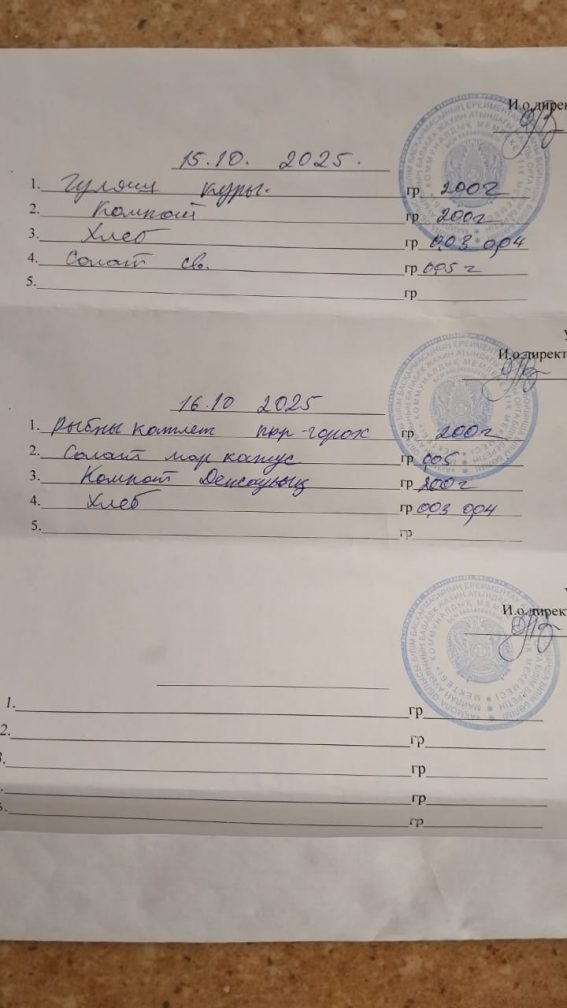 И.о.дирек
15.10. 2025.
1. Гуляш куры. гр 200г
2. Компот гр 200г
3. Хлеб гр 0,03 0,04
4. Солат св. гр 0,05 г
5. гр
И.о.директ
16.10 2025
1. Рыбны котлет пюр-горох гр 200г
2. Солат мор капус гр 0,05
3. Компот Денсаулық гр 200г
4. Хлеб гр 0,03 0,04
5. гр
И.о.дирек
1. гр
2. гр
3. гр
гр
5. гр